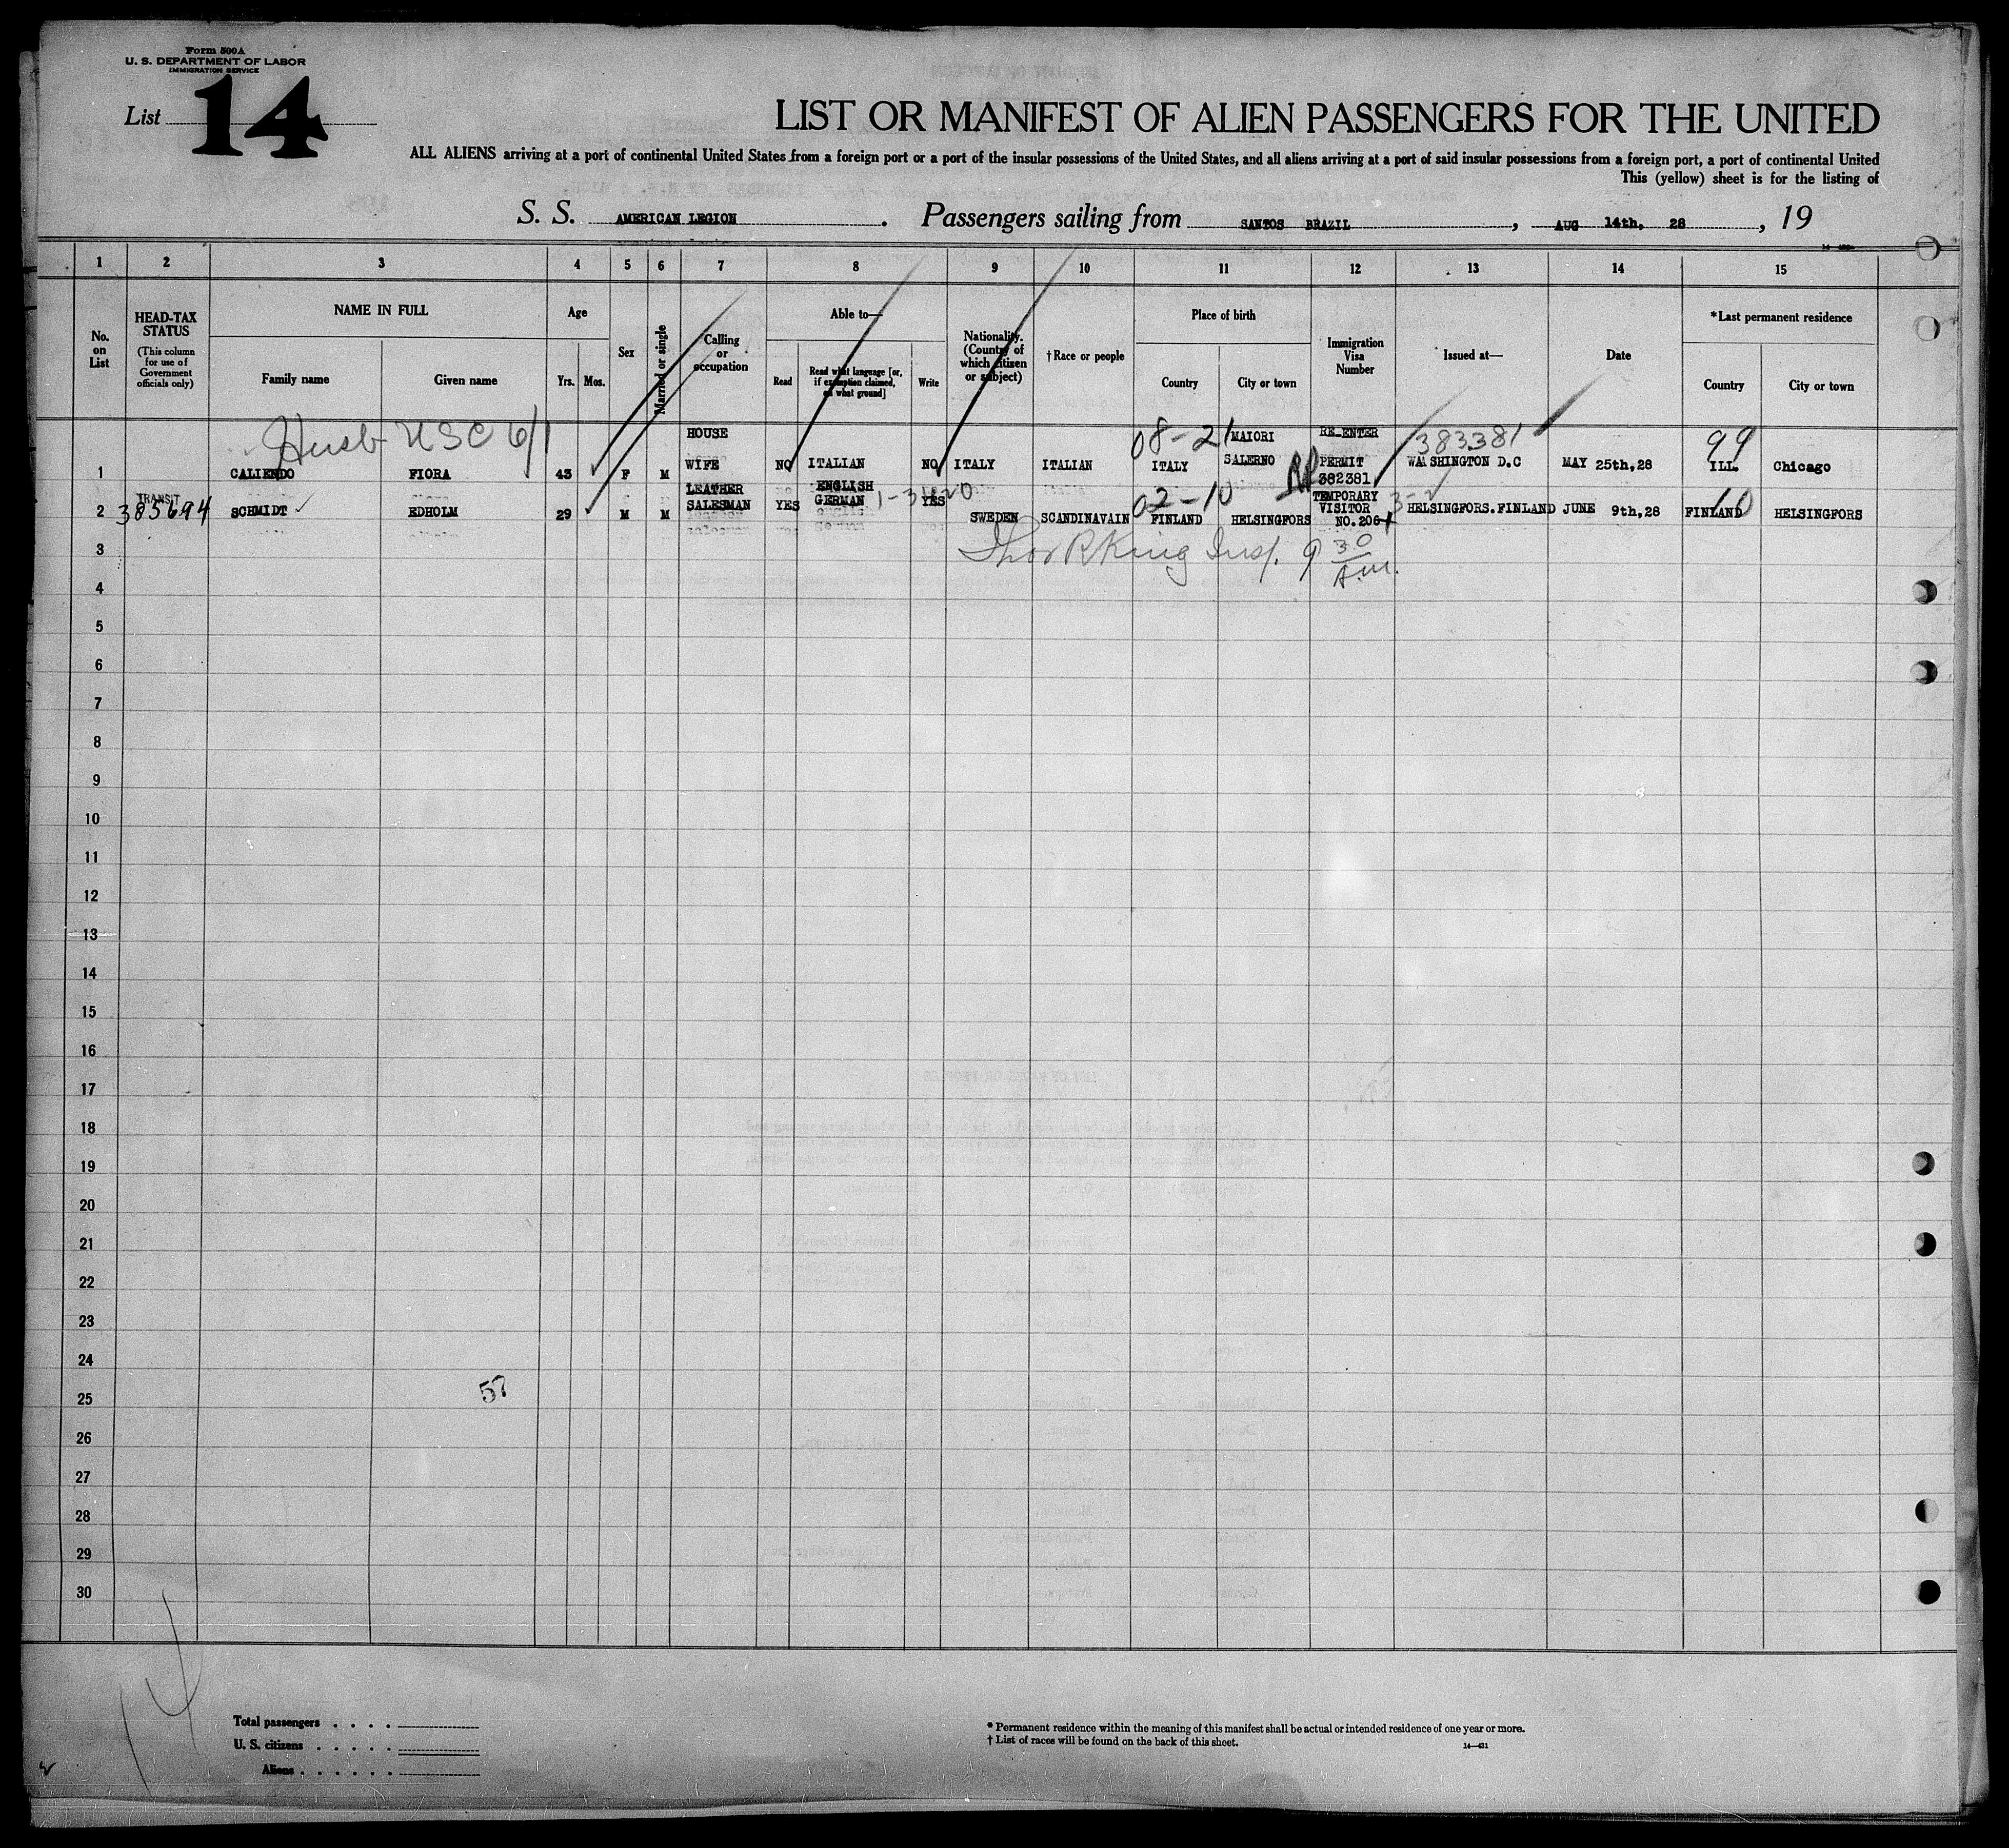 Form 500A
U. S. DEPARTMENT OF LABOR
IMMIGRATION SERVICE
List 14
LIST OR MANIFEST OF ALIEN PASSENGERS FOR THE UNITED
ALL ALIENS arriving at a port of continental United States from a foreign port or a port of the insular possessions of the United States, and all aliens arriving at a port of said insular possessions from a foreign port, a port of continental United
This (yellow) sheet is for the listing of
S. S. AMERICAN LEGION. Passengers sailing from SANTOS BRAZIL, AUG 14th, 28, 19
1 2 3 4 5 6 7 8 9 10 11 12 13 14 15
No. on List
HEAD-TAX STATUS
(This column for use of Government officials only)
NAME IN FULL
Family name
Given name
Age
Yrs.
Mos.
Sex
Married or single
Calling or occupation
Able to—
Read
Read what language [or, if exemption claimed, on what ground]
Write
Nationality. (Country of which citizen or subject)
†Race or people
Place of birth
Country
City or town
Immigration Visa Number
Issued at—
Date
*Last permanent residence
Country
City or town
Husb USC 6/1
08-21
383381
99
1 CALIENDO FIORA 43 F M HOUSE WIFE NO ITALIAN NO ITALY ITALIAN ITALY MAIORI SALERNO RE-ENTER PERMIT 382381 WASHINGTON D.C MAY 25th,28 ILL. Chicago
RP
02-10
10
2 TRANSIT 385694 SCHMIDT EDHOLM 29 M M LEATHER SALESMAN YES ENGLISH GERMAN YES SWEDEN SCANDINAVAIN FINLAND HELSINGFORS TEMPORARY VISITOR NO.206 HELSINGFORS.FINLAND JUNE 9th,28 FINLAND HELSINGFORS
3
Thor R King Insp. 9 30 A.M.
4
5
6
7
8
9
10
11
12
13
14
15
16
17
18
19
20
21
22
23
24
25
57
26
27
28
29
30
Total passengers . . . .
U. S. citizens . . . . .
Aliens . . . . . .
* Permanent residence within the meaning of this manifest shall be actual or intended residence of one year or more.
† List of races will be found on the back of this sheet.
14—431